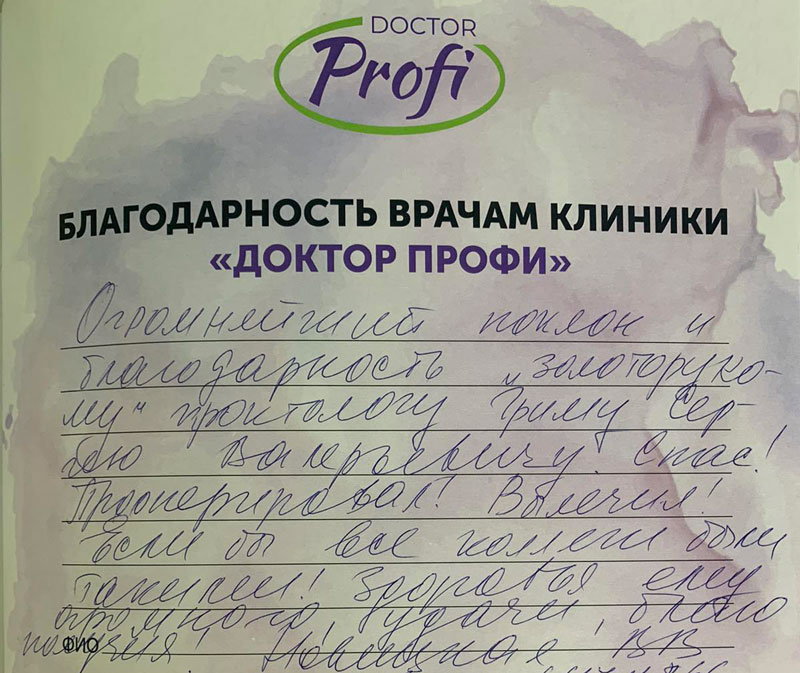 DOCTOR
Profi
БЛАГОДАРНОСТЬ ВРАЧАМ КЛИНИКИ
«ДОКТОР ПРОФИ»
Огромнейший поклон и
благодарность "золоторуко-
му" проктологу Гриму Сер-
гею Валерьевичу. Спас!
Прооперировал! Вылечил!
Если бы все коллеги были
такими! Здоровья ему
огромного, удачи, благо
получия!
ФИО
ВВ